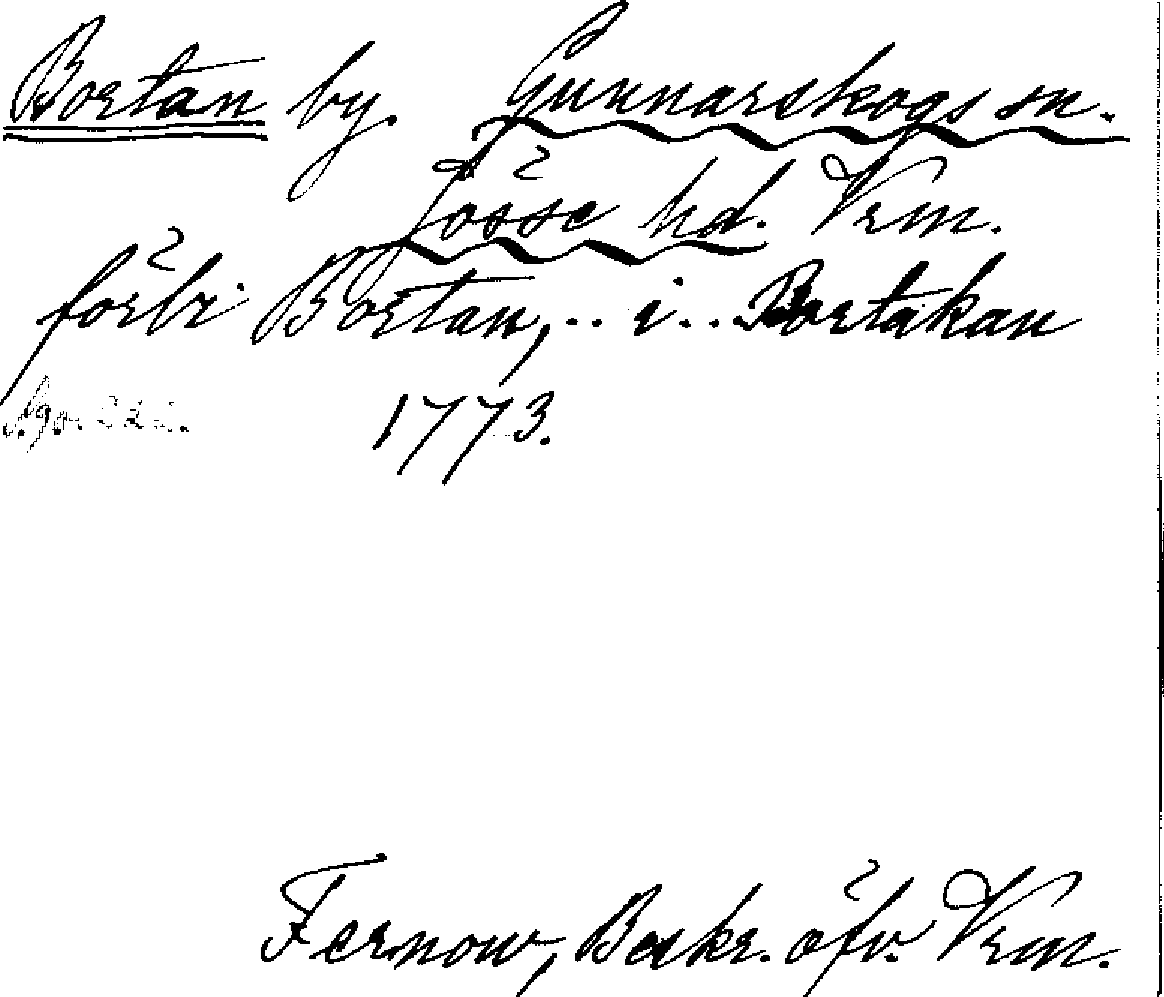 Bortan by. Gunnarskogs sn.
Jösse hd. Vrm.
förbi Bortan, .. i .. Bortakan
1773.
Fernow, Beskr. öfv. Vrm.